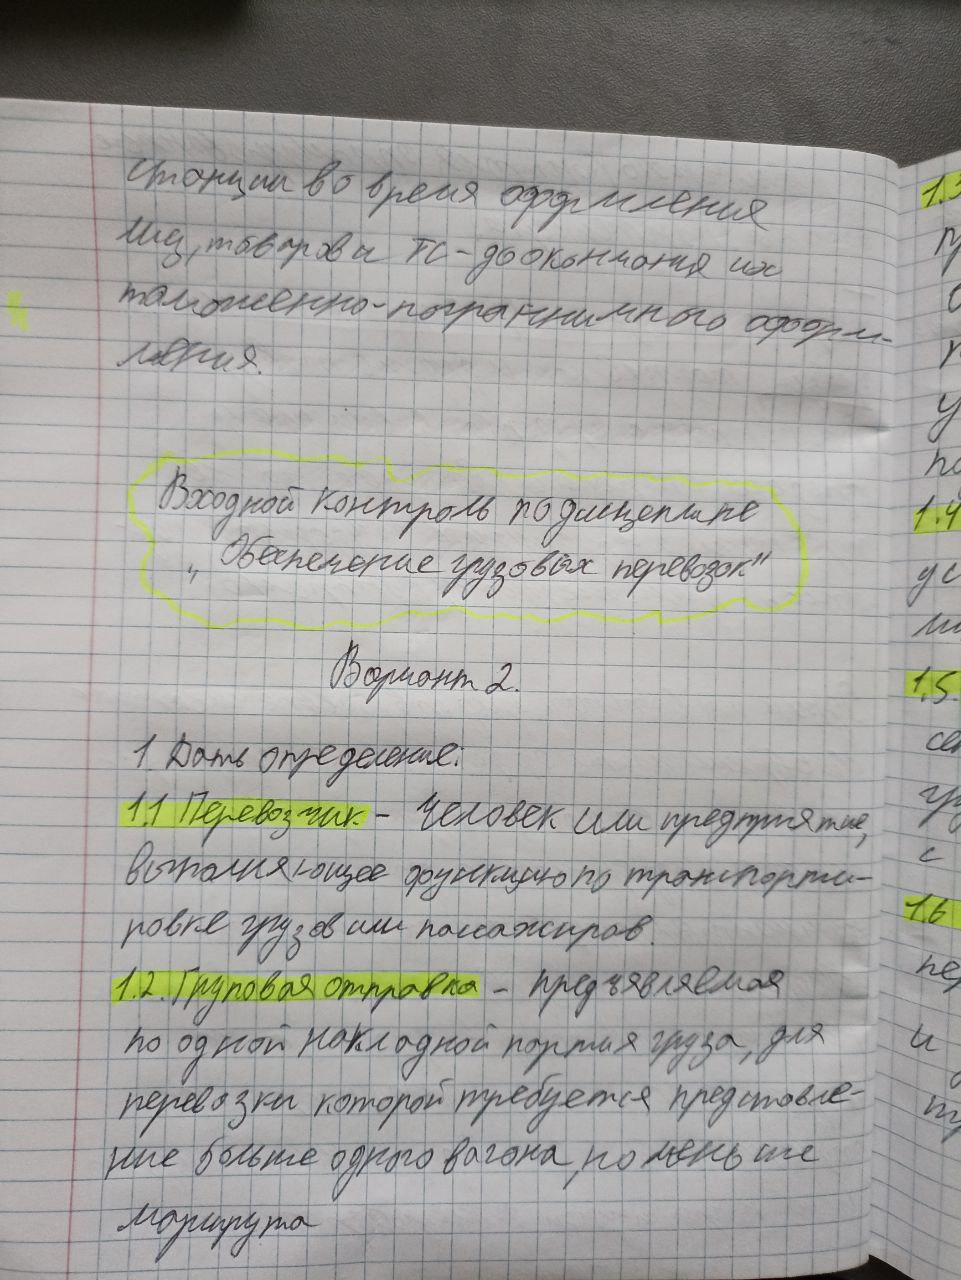 станции во время оформления
лиц, товаров и ТС - до окончания их
таможенно-пограничного оформ-
ления.
Входной контроль по дисцеплине
„Обеспечение грузовых перевозок"
Вариант 2.
1 Дать определение:
1.1 Перевозчик - Человек или предприятие,
выполняющее функцию по транспорти-
ровке грузов или пассажиров.
1.2. Груповая отправка - предъявляемая
по одной накладной партия груза, для
перевозки которой требуется представле-
ние больше одного вагона, но меньше
маршрута
1.4
1.5.
1.6